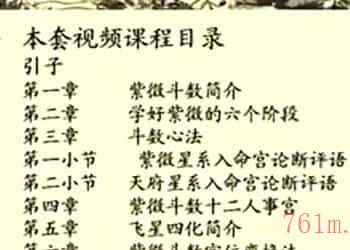 本套视频课程目录
引子
第一章 紫微斗数简介
第二章 学好紫微的六个阶段
第三章 斗数心法
第一小节 紫微星系入命宫论断评语
第二小节 天府星系入命宫论断评语
第四章 紫微斗数十二人事宫
第五章 飞星四化简介
761m.